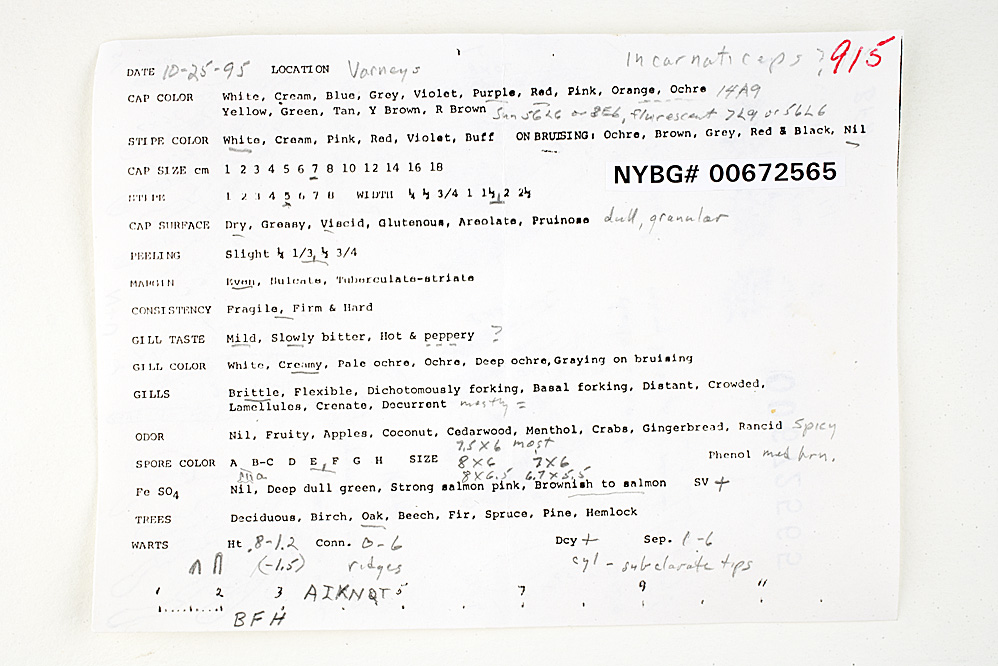 Incarnaticeps ? 915
DATE 10-25-95 LOCATION Varneys
CAP COLOR White, Cream, Blue, Grey, Violet, Purple, Red, Pink, Orange, Ochre 14A9
Yellow, Green, Tan, Y Brown, R Brown Sun 56L6 or 8E6, flurescent 7L9 or 56L6
STIPE COLOR White, Cream, Pink, Red, Violet, Buff ON BRUISING: Ochre, Brown, Grey, Red & Black, Nil
CAP SIZE cm 1 2 3 4 5 6 7 8 10 12 14 16 18
NYBG# 00672565
STIPE 1 2 3 4 5 6 7 8 WIDTH ¼ ½ 3/4 1 1½ 2 2½
CAP SURFACE Dry, Greasy, Viscid, Glutenous, Areolate, Pruinose dull, granular
PEELING Slight ¼ 1/3, ½ 3/4
MARGIN Even, Sulcate, Tuberculate-striate
CONSISTENCY Fragile, Firm & Hard
GILL TASTE Mild, Slowly bitter, Hot & peppery ?
GILL COLOR White, Creamy, Pale ochre, Ochre, Deep ochre, Graying on bruising
GILLS Brittle, Flexible, Dichotomously forking, Basal forking, Distant, Crowded,
Lamellules, Crenate, Decurrent mostly =
ODOR Nil, Fruity, Apples, Coconut, Cedarwood, Menthol, Crabs, Gingerbread, Rancid Spicy
7.5X6 most
SPORE COLOR A B-C D E, F G H SIZE 8X6 7X6 Phenol med brn.
8X6.5 6.7X5.5
Fe SO4 Nil, Deep dull green, Strong salmon pink, Brownish to salmon SV +
TREES Deciduous, Birch, Oak, Beech, Fir, Spruce, Pine, Hemlock
WARTS Ht .8-1.2 Conn. 0-6 Dcy + Sep. 1-6
(-1.5) ridges cyl - subclavate tips
1 2 3 AIKNQT 5 7 9 11
BFH